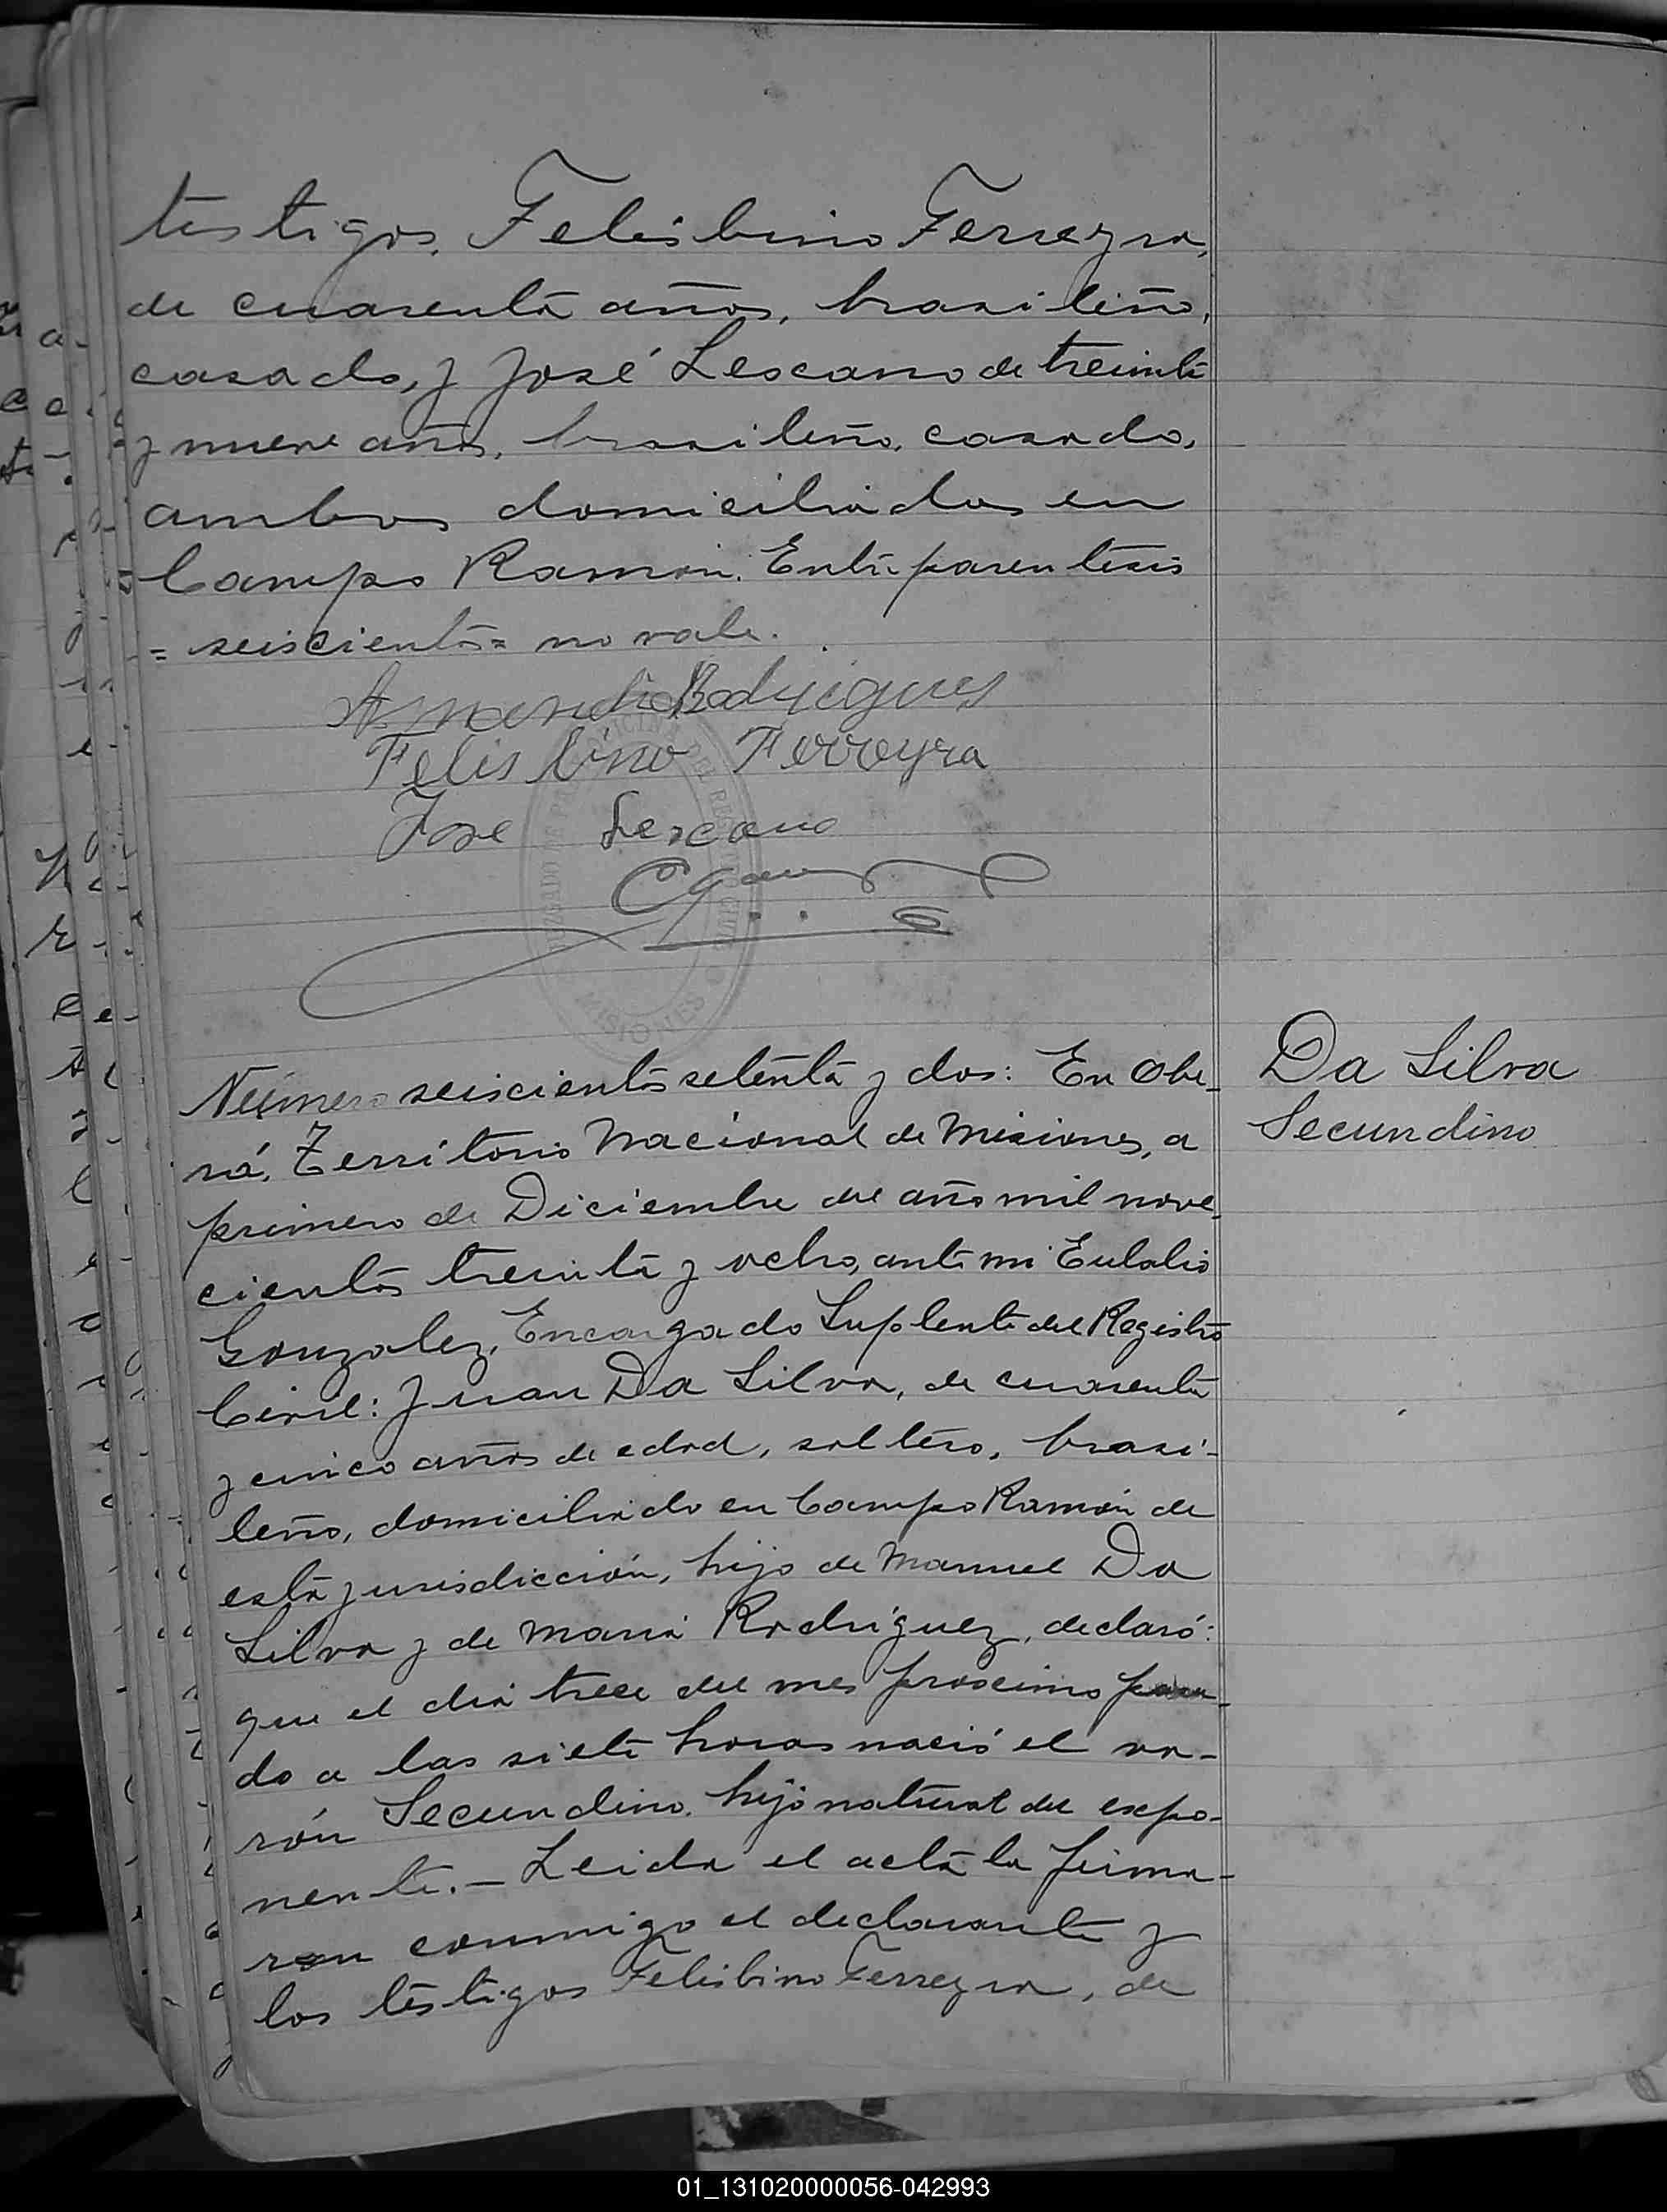 testigos, Felisbino Ferreyra,
de cuarenta años, brasileño,
casado, y José Lescano de treinta
y nueve años, brasileño, casado,
ambos domiciliados en
Campo Ramón. Entre parentesis
= seiscientos = no vale.
Rodrigues
Felisbino Ferreyra
Jose Lescano
MISIONES
Número seiscientos setenta y dos: En Obe-
rá, Territorio Nacional de Misiones, a
primero de Diciembre del año mil nove-
cientos treinta y ocho, ante mi Eulalio
Gonzalez, Encargado Suplente del Registro
Civil: Juan Da Silva, de cuarenta
y cinco años de edad, soltero, brasi-
leño, domiciliado en Campo Ramón de
esta jurisdicción, hijo de Manuel Da
Silva y de Maria Rodriguez, declaró:
que el dia trece del mes proximo pasa-
do a las siete horas nació el va-
rón Secundino, hijo natural del expo-
nente.- Leida el acta la firma-
ron conmigo el declarante y
los testigos Felisbino Ferreyra, de
Da Silva
Secundino
01_131020000056-042993